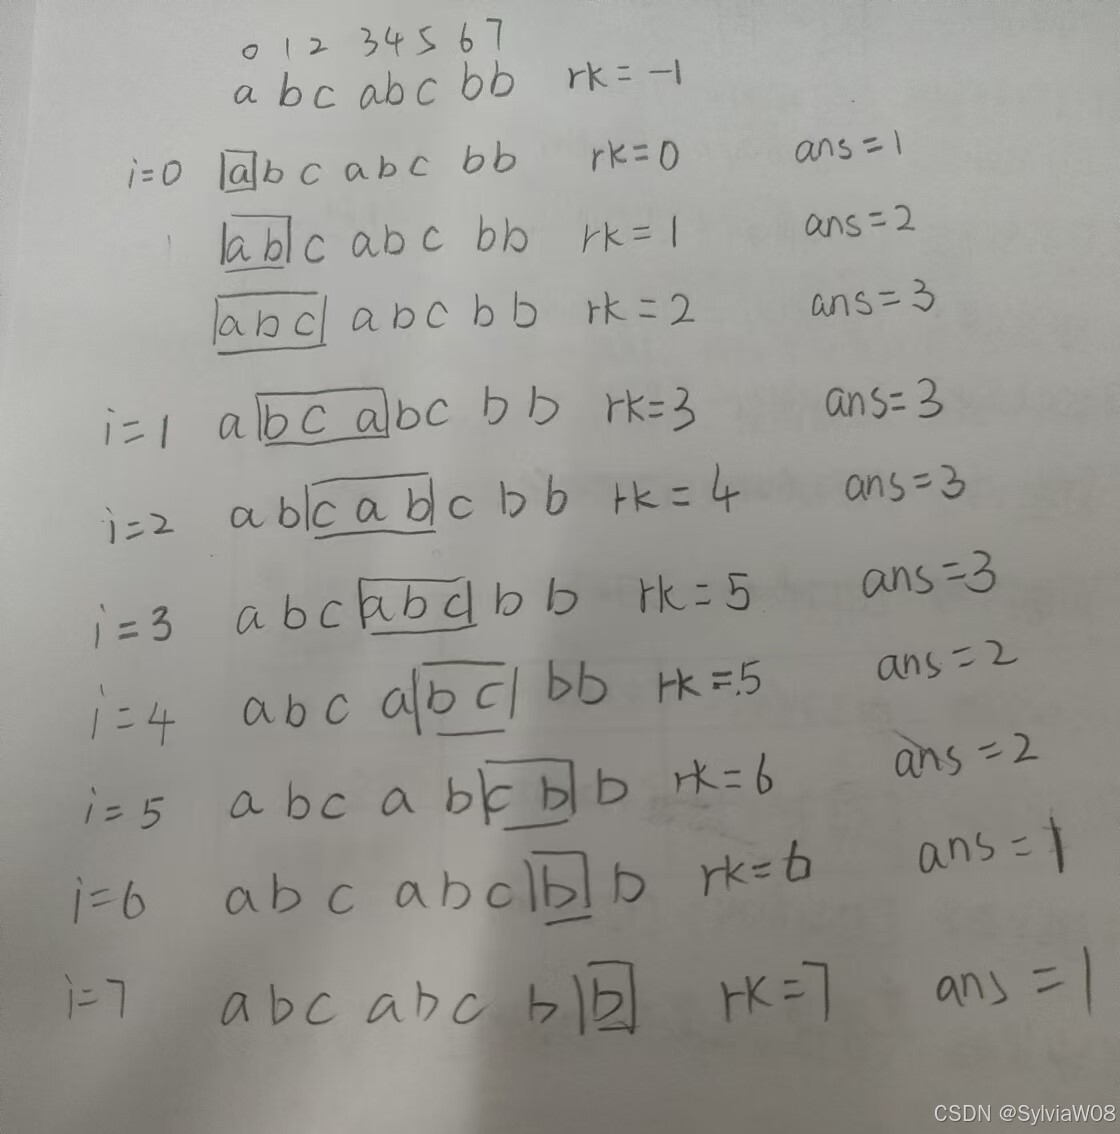 0 1 2 3 4 5 6 7
a b c a b c b b rk = -1
i=0 a b c a b c b b rk=0 ans=1
a b c a b c b b rk=1 ans=2
a b c a b c b b rk=2 ans=3
i=1 a b c a b c b b rk=3 ans=3
i=2 a b c a b c b b rk=4 ans=3
i=3 a b c a b c b b rk=5 ans=3
i=4 a b c a b c b b rk=5 ans=2
i=5 a b c a b c b b rk=6 ans=2
i=6 a b c a b c b b rk=6 ans=1
i=7 a b c a b c b b rk=7 ans=1
CSDN @SylviaW08